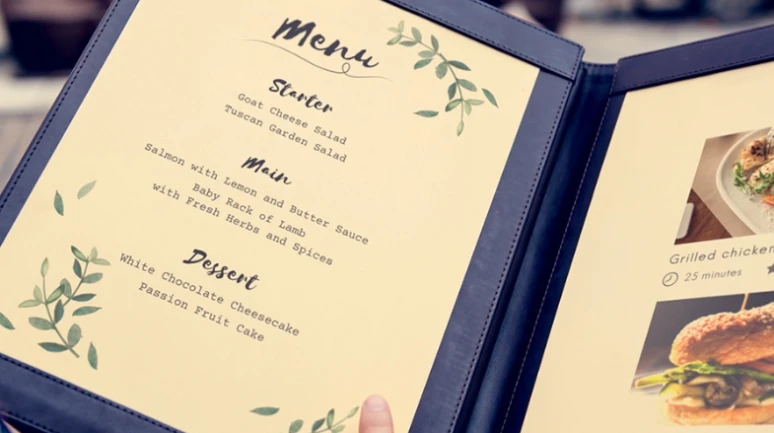 Menu
Starter
Goat Cheese Salad
Tuscan Garden Salad
Main
Salmon with Lemon and Butter Sauce
Baby Rack of Lamb
with Fresh Herbs and Spices
Dessert
White Chocolate Cheesecake
Passion Fruit Cake
Grilled chicken
25 minutes